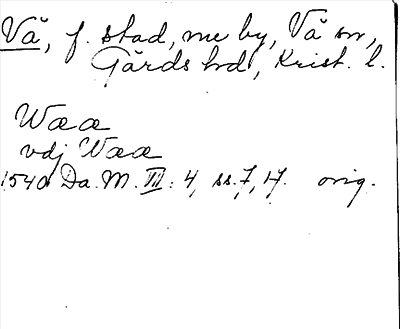 Vå, f. stad, nu by, Vå sn,
Gärds hd, Krist. l.
Wææ
vdj Wææ
1540 Da. M. III: 4, ss. 7, 17. orig.